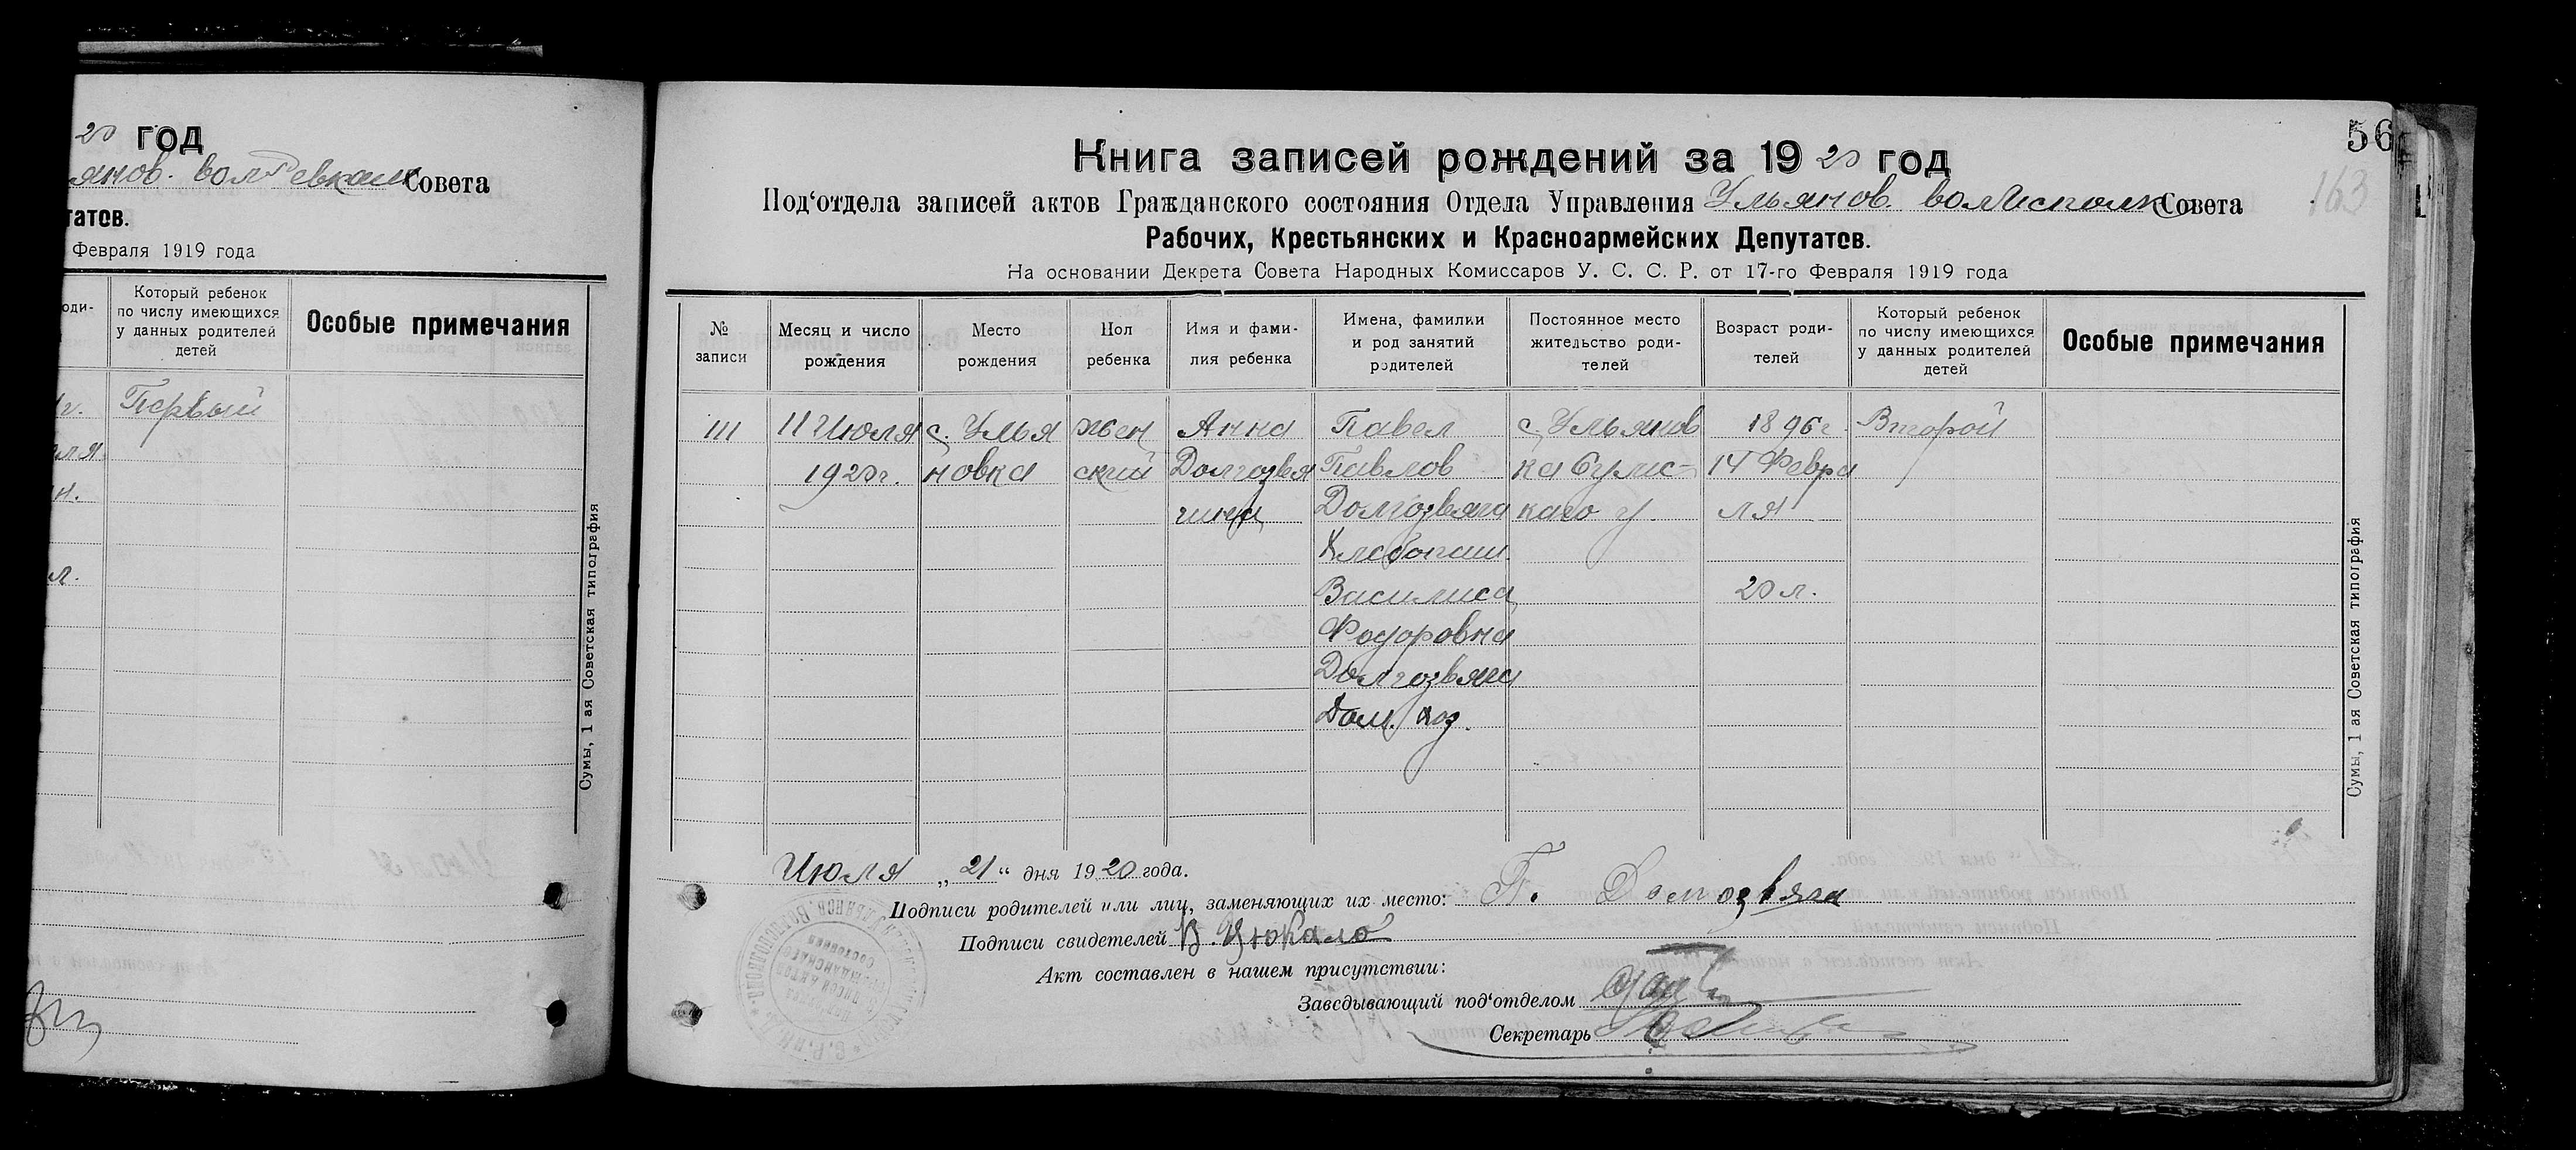 20 год
янов. волРевком Совета
татов.
Февраля 1919 года
оди-
Который ребенок
по числу имеющихся
у данных родителей
детей
Особые примечания
г. Первый
ля
н.
л.
Сумы, 1 ая Советская типография
56
163
Книга записей рождений за 19 20 год
Под‘отдела записей актов Гражданского состояния Отдела Управления Ульянов. волИсполк. Совета
Рабочих, Крестьянских и Красноармейских Депутатов.
На основании Декрета Совета Народных Комиссаров У. С. С. Р. от 17-го Февраля 1919 года
№
записи
Месяц и число
рождения
Место
рождения
Пол
ребенка
Имя и фами-
лия ребенка
Имена, фамилии
и род занятий
родителей
Постоянное место
жительство роди-
телей
Возраст роди-
телей
Который ребенок
по числу имеющихся
у данных родителей
детей
Особые примечания
111 11 Июля с. Улья жен Анна Павел с. Ульянов 1896 г. Второй
1920 г. новка ский Долгозвя Павлов ка Сумс- 14 Февра
Долгозвяга каго у. ля
Хлебопаш.
Василиса 20 л.
Федоровна
Долгозвяга
Дом. хоз.
Июля „21“ дня 1920 года.
Подписи родителей или лиц, заменяющих их место: П. Долгозвяга
Подписи свидетелей В. Цюкало
Акт составлен в нашем присутствии:
Заведывающий под‘отделом
Секретарь
Сумы, 1 ая Советская типография